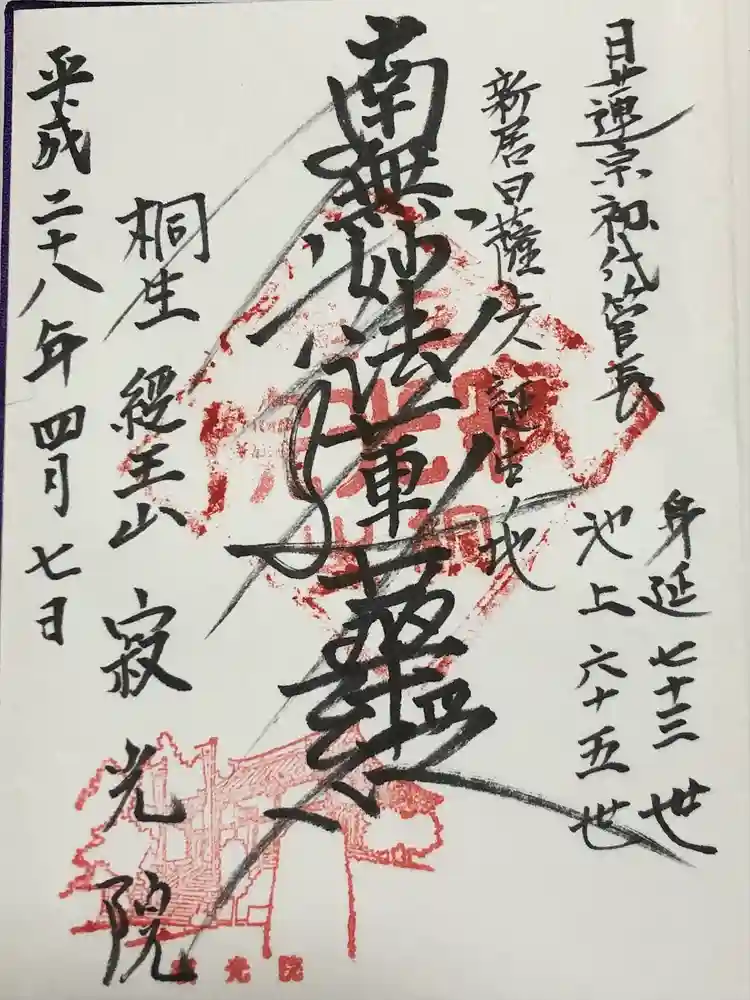 日蓮宗初代管長
身延七十三世
池上六十五世
新居日薩上人誕生ノ地
南無妙法蓮華経
桐生 経王山 寂光院
平成二十八年四月七日
寂光院